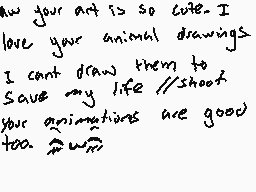 aw your art is so cute. I
love your animal drawings
I cant draw them to
save my life //shoot
your animations are good
too. ^w^